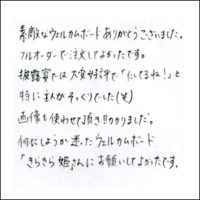 素敵なウェルカムボードありがとうございました。
フルオーダーで注文してよかったです。
披露宴では大好評で「似てるね!」と
特に主人がそっくりでした(笑)
画像も使わせて頂き助かりました。
何にしようか迷ったウェルカムボード
「きらきら姫」さんにお願いしてよかったです。